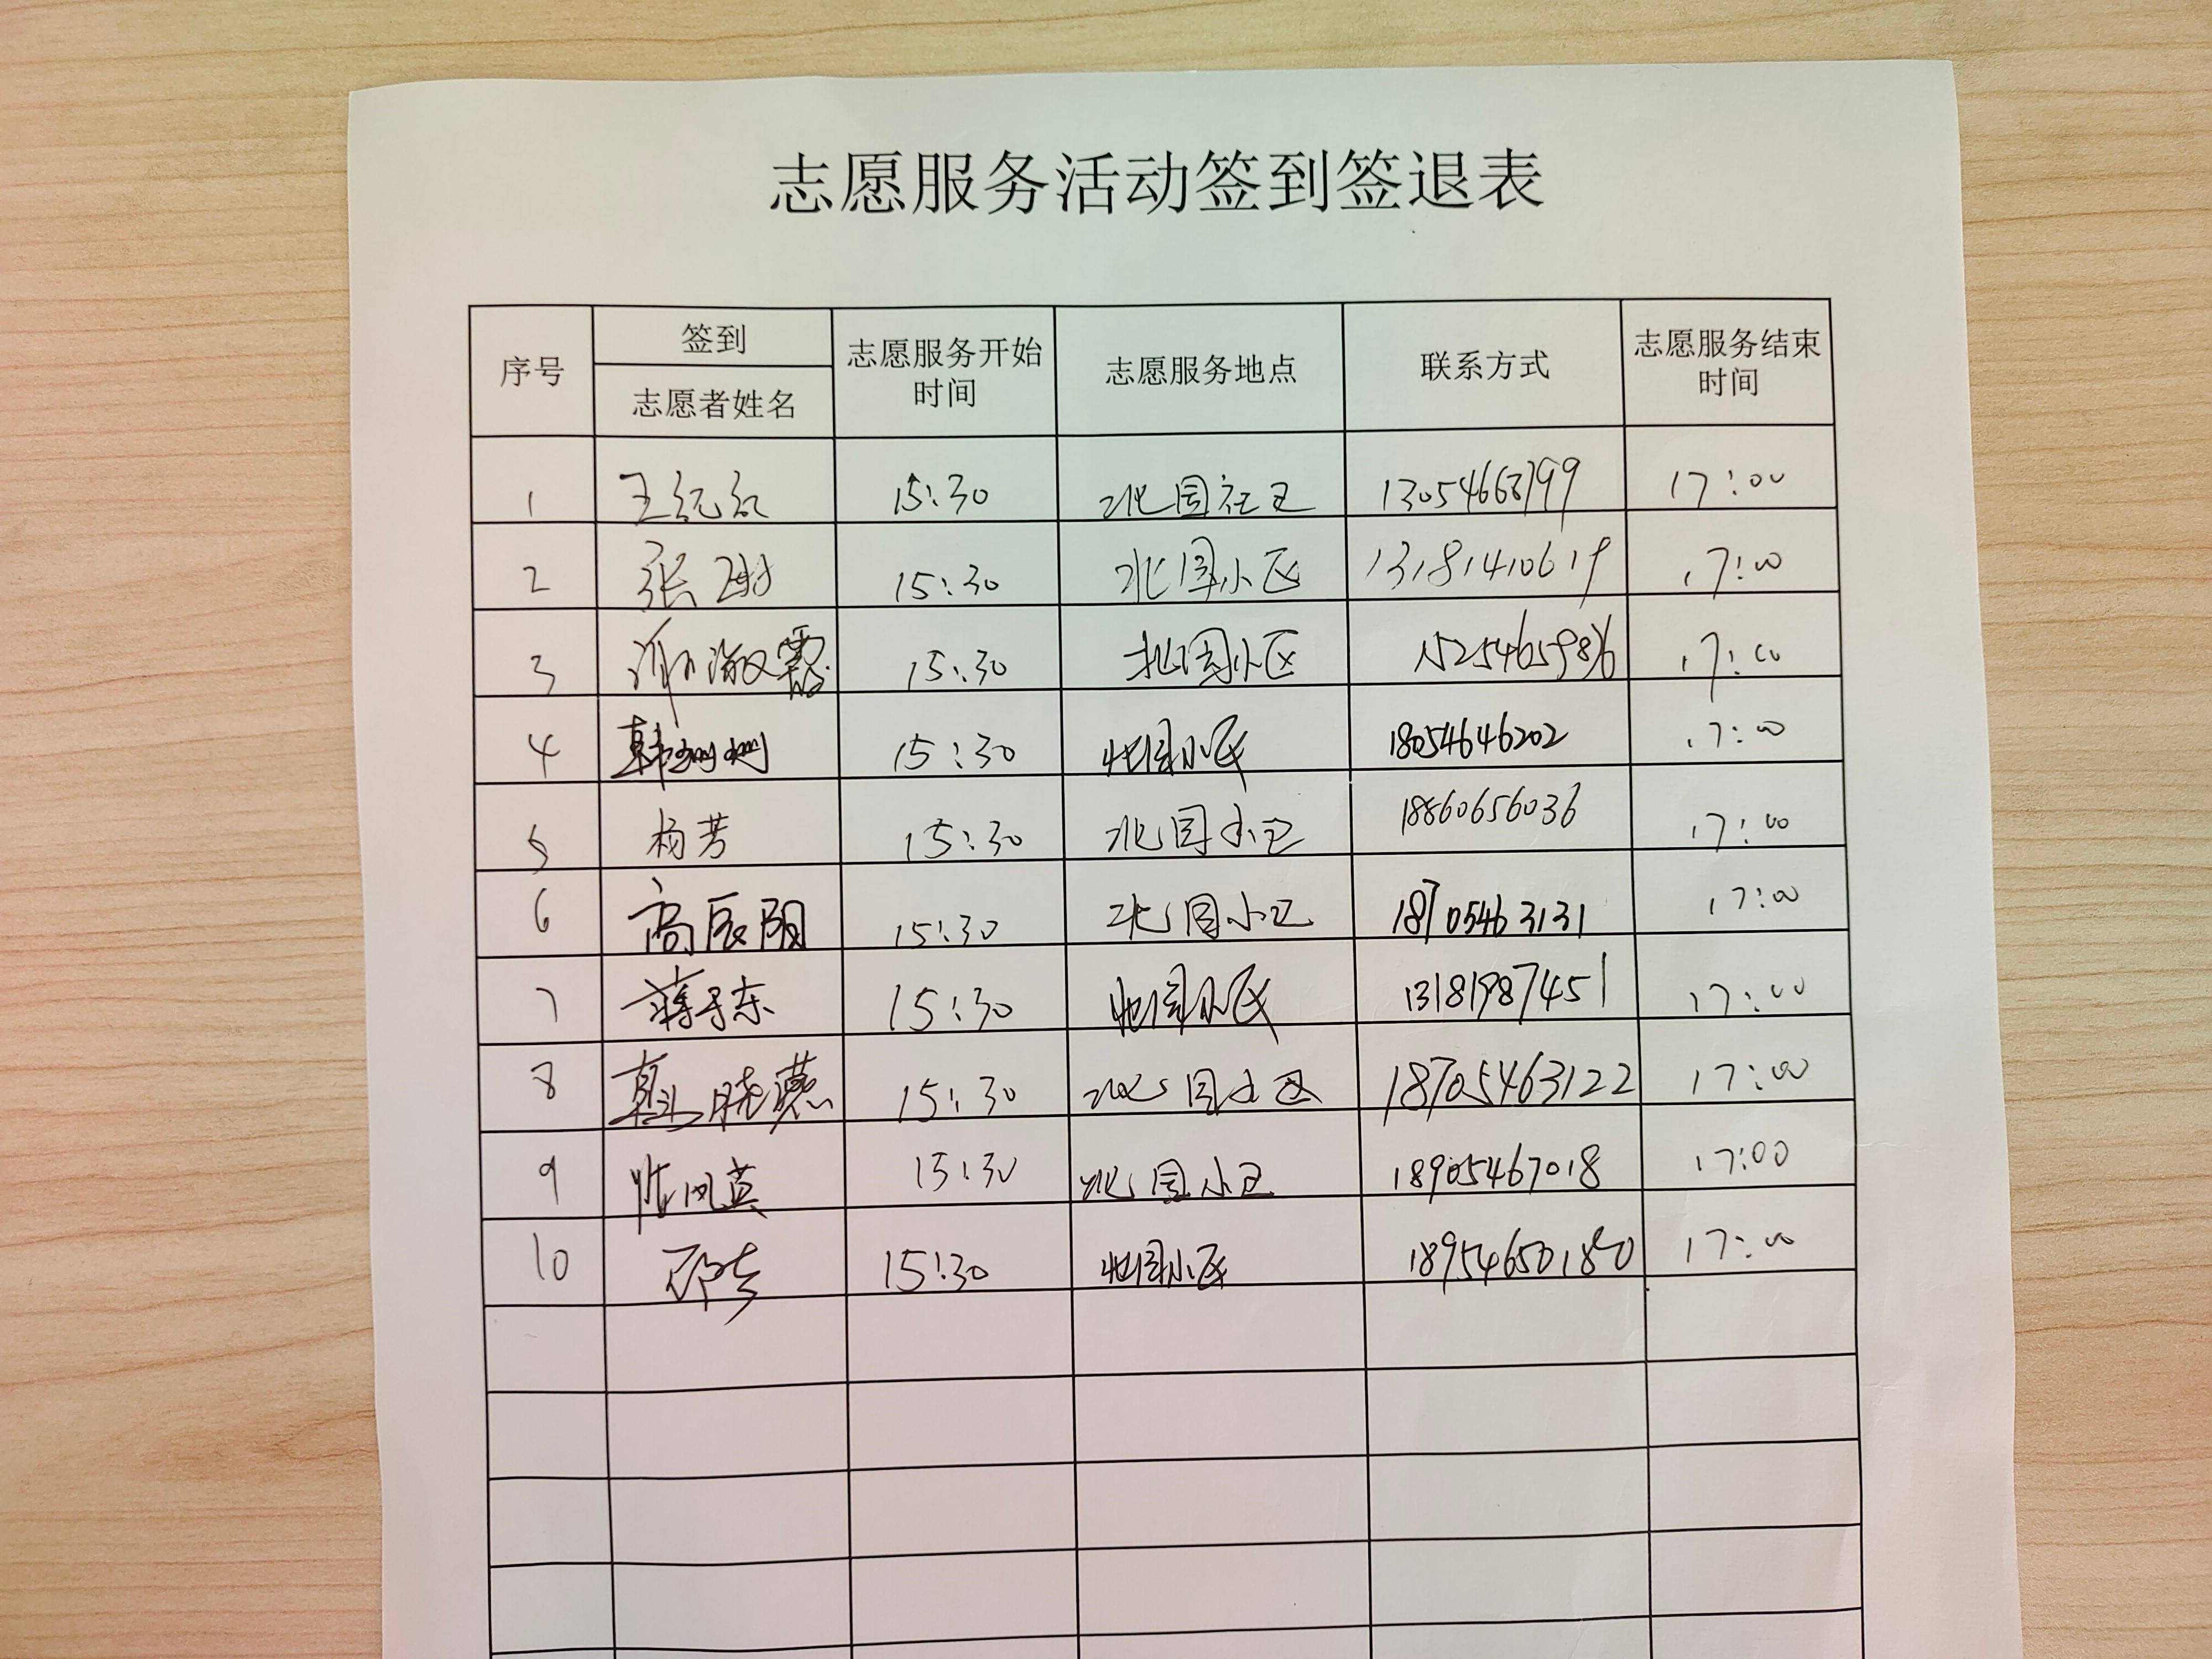 志愿服务活动签到签退表
序号 签到 志愿者姓名 志愿服务开始时间 志愿服务地点 联系方式 志愿服务结束时间
1 15:30 北国社区 17:00
2 张 15:30 北国小区 17:00
3 15:30 北国小区 17:00
4 韩珊珊 15:30 北国小区 18054646202 17:00
5 杨芳 15:30 北国小区 18860656036 17:00
6 高辰阳 15:30 北国小区 18705463131 17:00
7 蒋子东 15:30 北国小区 13181987451 17:00
8 韩晓燕 15:30 北国小区 18705463122 17:00
9 15:30 北国小区 18905467018 17:00
10 15:30 北国小区 18954650180 17:00